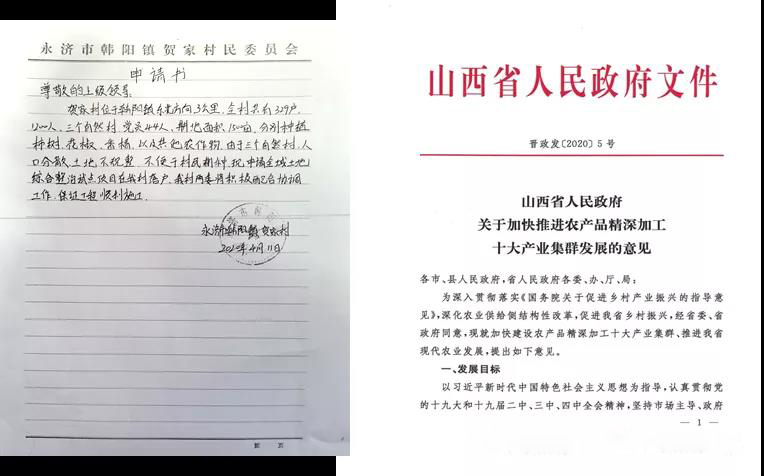 永济市韩阳镇贺家村民委员会
申请书
尊敬的上级领导
贺家村位于韩阳镇东南方向3公里,全村共有329户,
1200人,三个自然村,党员44人,耕地面积1500亩,分别种植
柿树、花椒、香椿,以及其他农作物,由于三个自然村,人
口分散,土地不规整,不便于村民耕种,现申请全域土地
综合整治试点项目在我村落户,我村两委将积极配合协调
工作,保证工程顺利施工.
永济市韩阳镇贺家村
2020年4月11日
第 页
山西省人民政府文件
晋政发〔2020〕5号
山西省人民政府
关于加快推进农产品精深加工
十大产业集群发展的意见
各市、县人民政府,省人民政府各委、办、厅、局:
为深入贯彻落实《国务院关于促进乡村产业振兴的指导意
见》,深化农业供给侧结构性改革,促进我省乡村振兴,经省委、省
政府同意,现就加快建设农产品精深加工十大产业集群、推进我省
现代农业发展,提出如下意见。
一、发展目标
以习近平新时代中国特色社会主义思想为指导,认真贯彻党
的十九大和十九届二中、三中、四中全会精神,坚持市场主导、政府
— 1 —